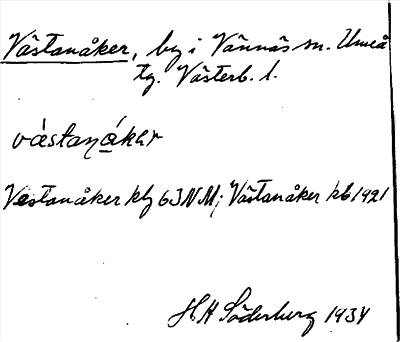 Västanåker, by i Vännäs sn. Umeå
tg. Västerb. l.
västanåkər
Vestanåker klg 63 NM; Västanåker kb 1921
HH Söderberg 1934